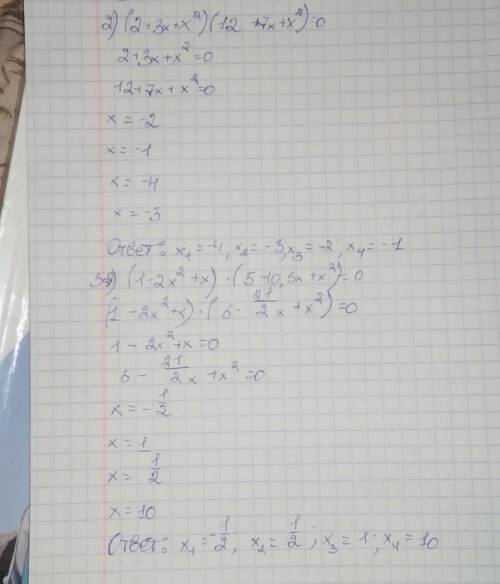 2) (2+3x+x²)(12+7x+x²)=0
2+3x+x²=0
12+7x+x²=0
x=-2
x=-1
x=-4
x=-3
Ответ: x₁=-4, x₂=-3, x₃=-2; x₄=-1
3) (1-2x²+x)·(5-10,5x+x²)=0
(1-2x²+x)·(5-21/2x+x²)=0
1-2x²+x=0
5-21/2x+x²=0
x=-1/2
x=1
x=1/2
x=10
Ответ: x₁=-1/2; x₂=1/2; x₃=1; x₄=10